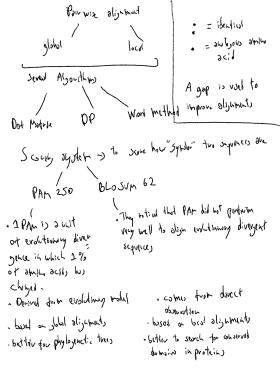 Pairwise alignment
global
local
several Algorithms
Dot Matrix
DP
Word method
: = identical
. = analogous amino
acid
A gap is used to
improve alignments
Scoring system → to score how "similar" two sequences are
PAM 250
BLOSUM 62
. 1 PAM is a unit
of evolutionary diver
gence in which 1%
of amino acids has
changed.
. Derived from evolutionary model
. based on global alignments
. better for phylogenetic trees
. They noticed that PAM did not perform
very well to align evolutionary divergent
sequences
. comes from direct
observation
. based on local alignments
. better to search for conserved
domains in proteins